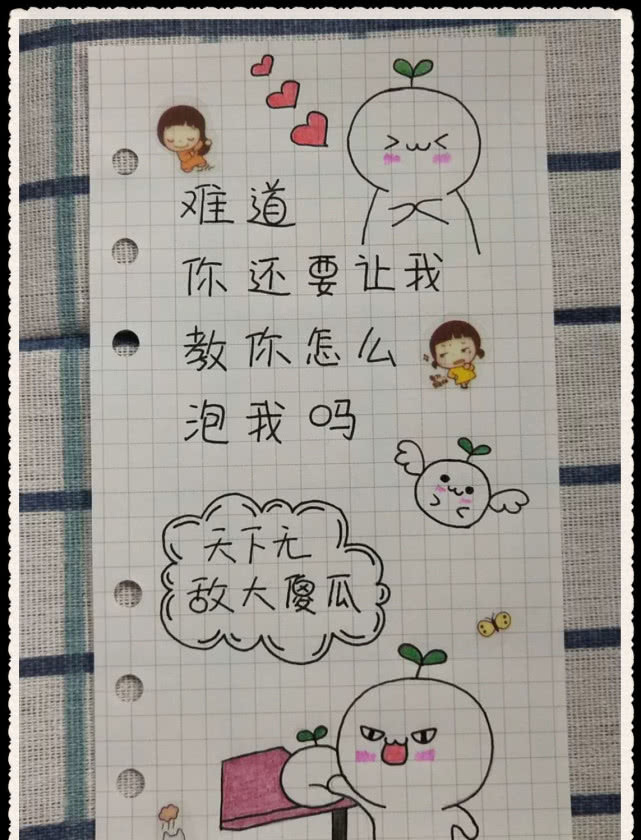 难道
你还要让我
教你怎么
泡我吗
天下无
敌大傻瓜